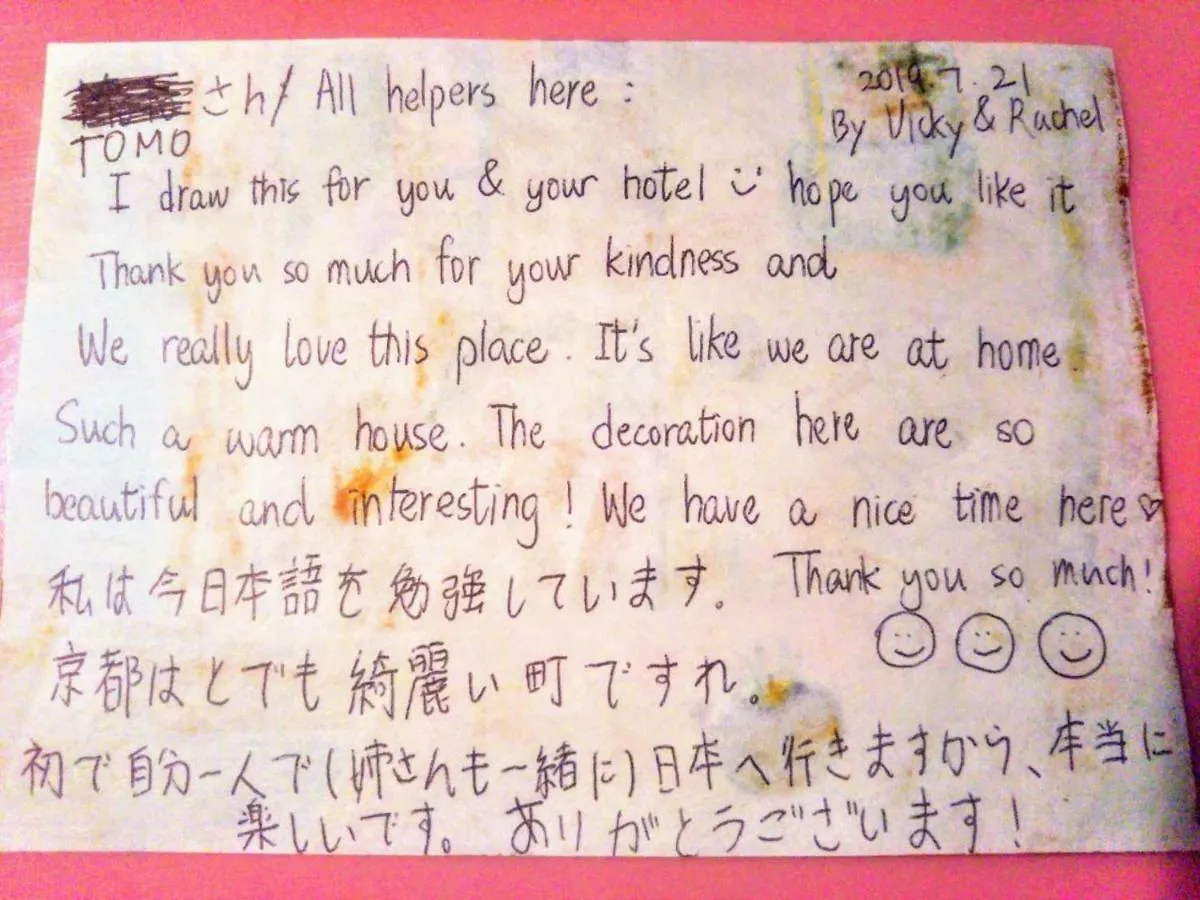 さん/ All helpers here :
2019.7.21
By Vicky & Rachel
TOMO
I draw this for you & your hotel hope you like it
Thank you so much for your kindness and
We really love this place. It's like we are at home.
Such a warm house. The decoration here are so
beautiful and interesting! We have a nice time here♡
私は今日本語を勉強しています。
Thank you so much!
京都はとでも綺麗い町ですれ。
初で自分一人で(姉さんも一緒に)日本へ行きますから、本当に
楽しいです。ありがとうございます!